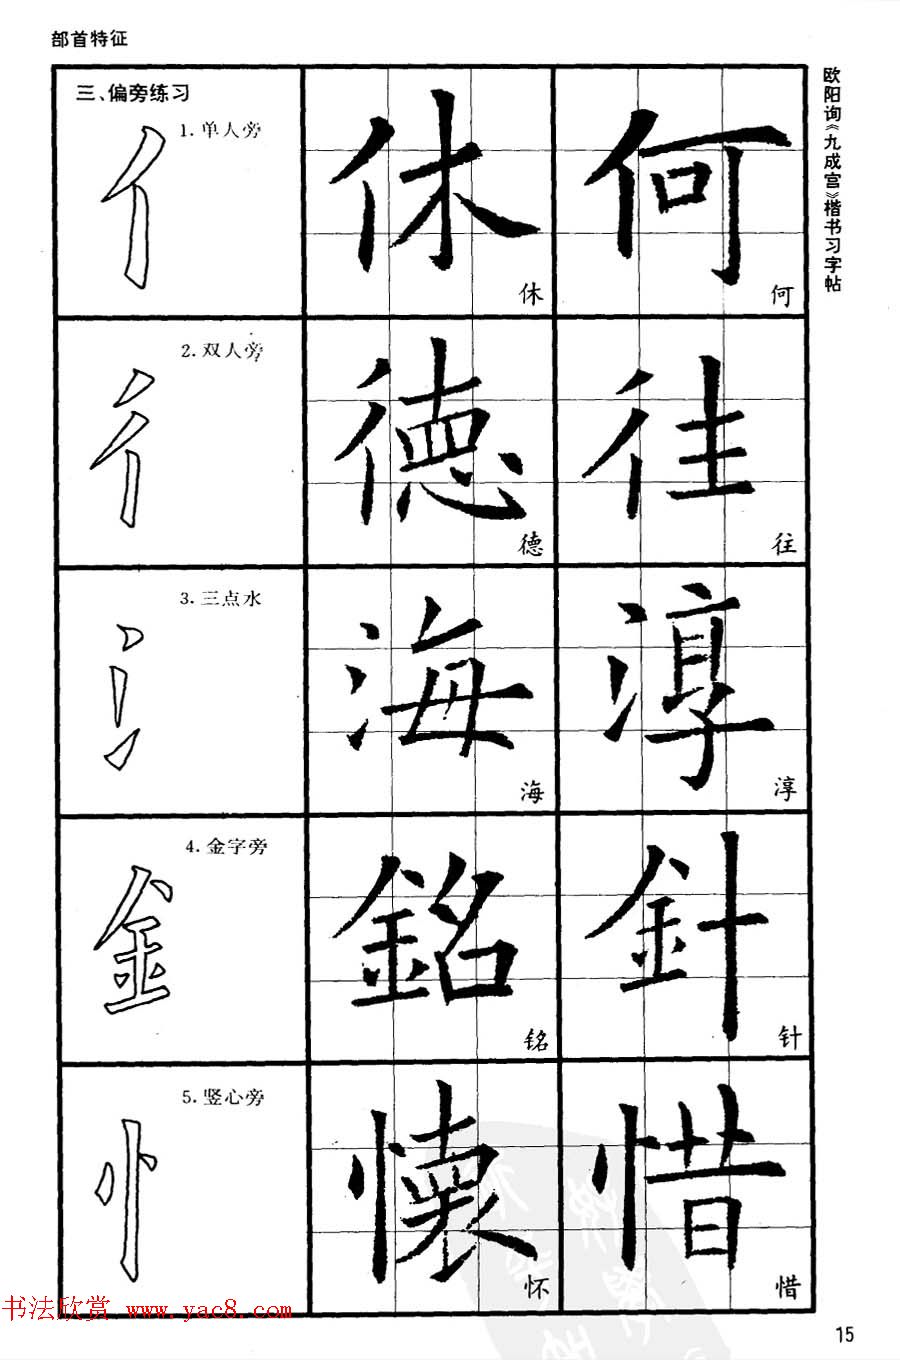 部首特征
三、偏旁练习
欧阳询《九成宫》楷书习字帖
1.单人旁
亻
休
休
何
何
2.双人旁
彳
德
德
往
往
3.三点水
氵
海
海
淳
淳
4.金字旁
釒
銘
铭
針
针
5.竖心旁
忄
懷
怀
惜
惜
书法欣赏 www.yac8.com
15